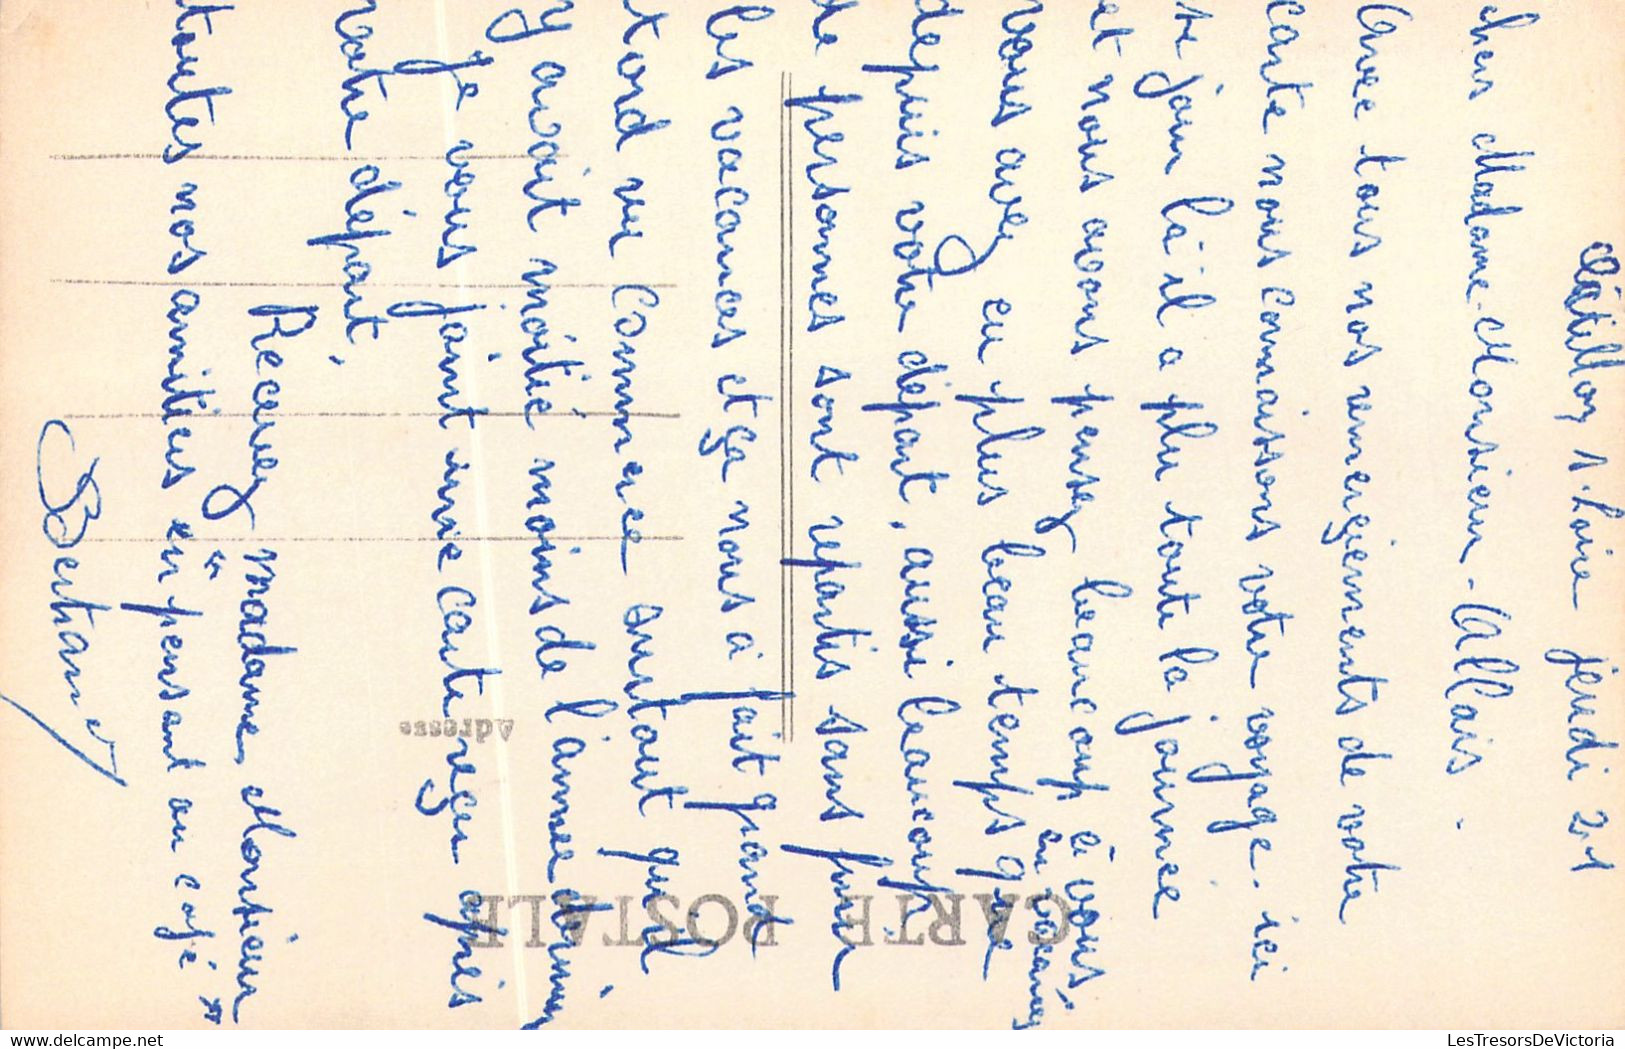 Châtillon s. Loire jeudi 21
chers Madame Monsieur Allais.
Avec tous nos remerciements de votre
carte nous connaissons votre voyage. ici
se jour là il a plu toute la journée
et nous avons pensez beaucoup à vous,
vous avez eu plus beau temps que
en vacances
depuis votre départ, aussi beaucoup
de personnes sont repartis sans finir
les vacances et ça nous à fait grand
tord au Commerce surtout qu'il
y avait moitié moins de l'année dernier
je vous joint une carte reçu après
votre départ,
Recevez Madame, Monsieur
toutes nos amitiés "en pensant au café"
Bertrand
CARTE POSTALE
Adresse
LesTresorsDeVictoria